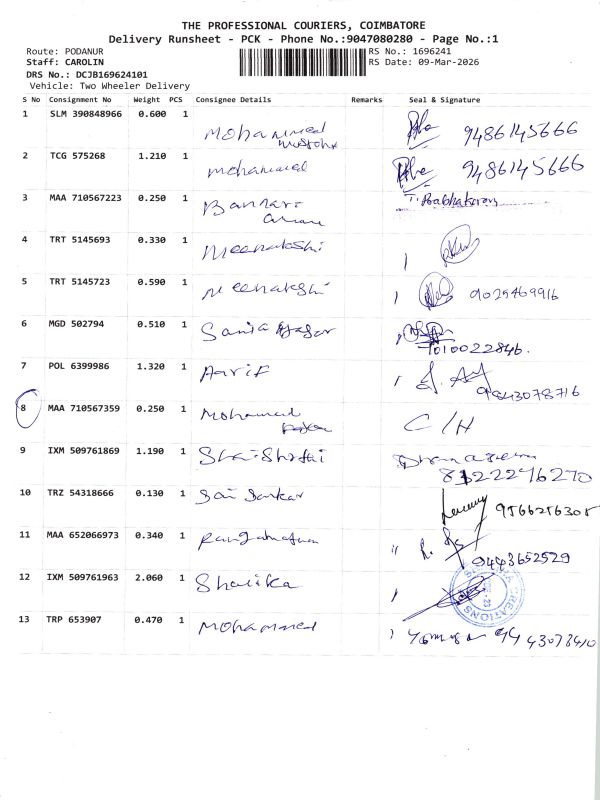 THE PROFESSIONAL COURIERS, COIMBATORE
Delivery Runsheet - PCK - Phone No.:9047080280 - Page No.:1
Route: PODANUR RS No.: 1696241
Staff: CAROLIN RS Date: 09-Mar-2026
DRS No.: DCJB169624101
Vehicle: Two Wheeler Delivery
S No Consignment No Weight PCS Consignee Details Remarks Seal & Signature
1 SLM 390848966 0.600 1 Mohammed 9486145666
2 TCG 575268 1.210 1 Mohammed 9486145666
3 MAA 710567223 0.250 1 Bannari
4 TRT 5145693 0.330 1 Meenakshi
5 TRT 5145723 0.590 1 Meenakshi 9025469916
6 MGD 502794 0.510 1 7010022846.
7 POL 6399986 1.320 1 Aarif 9843078716
8 MAA 710567359 0.250 1 Mohamed C/H
9 IXM 509761869 1.190 1
10 TRZ 54318666 0.130 1 Sai Sankar
11 MAA 652066973 0.340 1 9443652529
12 IXM 509761963 2.060 1 Shalika
13 TRP 653907 0.470 1 Mohammed